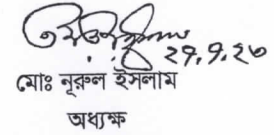 ২৭.৭.২৩
মোঃ নূরুল ইসলাম
অধ্যক্ষ